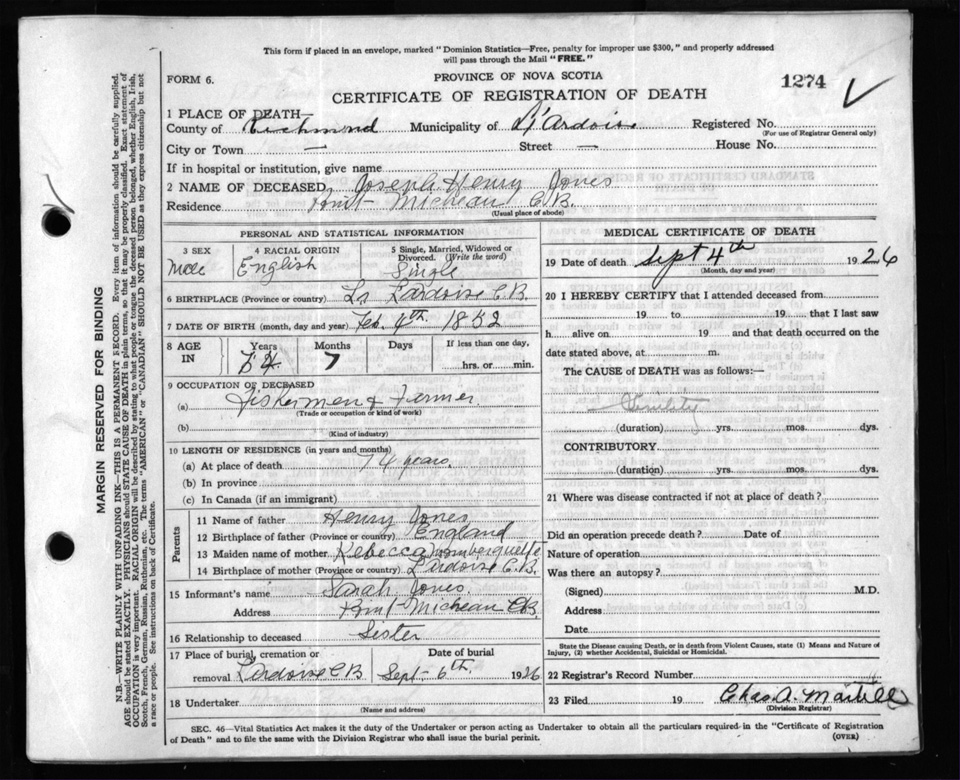 This form if placed in an envelope, marked "Dominion Statistics—Free, penalty for improper use $300," and properly addressed
will pass through the Mail "FREE."
FORM 6.
PROVINCE OF NOVA SCOTIA
1274
CERTIFICATE OF REGISTRATION OF DEATH
1 PLACE OF DEATH—
County of Richmond Municipality of L'Ardoise Registered No.
(For use of Registrar General only)
City or Town — Street — House No.
If in hospital or institution, give name
2 NAME OF DECEASED, Joseph Henry Jones
Residence Point Micheau C.B.
(Usual place of abode)
PERSONAL AND STATISTICAL INFORMATION
3 SEX
4 RACIAL ORIGIN
5 Single, Married, Widowed or
Divorced. (Write the word)
English
Single
6 BIRTHPLACE (Province or country) Lardoise C.B.
7 DATE OF BIRTH (month, day and year) Feb. 1852
8 AGE
IN
Years
Months
Days
If less than one day,
7
hrs. or min.
9 OCCUPATION OF DECEASED
(a) Fishermen & Fermer
(Trade or occupation or kind of work)
(b)
(Kind of industry)
10 LENGTH OF RESIDENCE (in years and months)
(a) At place of death 74 years.
(b) In province
(c) In Canada (if an immigrant)
Parents
11 Name of father Henry Jones
12 Birthplace of father (Province or country) England
13 Maiden name of mother Rebecca
14 Birthplace of mother (Province or country) Lardoise C.B.
15 Informant's name Sarah Jones
Address Point Micheau C.B.
16 Relationship to deceased Sister
17 Place of burial, cremation or
removal Lardoise C B
Date of burial
Sept 6th 1926
18 Undertaker
(Name and address)
MEDICAL CERTIFICATE OF DEATH
19 Date of death Sept 4th 1926
(Month, day and year)
20 I HEREBY CERTIFY that I attended deceased from
19 to 19 that I last saw
h alive on 19 and that death occurred on the
date stated above, at m.
The CAUSE of DEATH was as follows:—
Senility
(duration) yrs. mos. dys.
CONTRIBUTORY
(duration) yrs. mos. dys.
21 Where was disease contracted if not at place of death?
Did an operation precede death? Date of
Nature of operation
Was there an autopsy?
(Signed) M.D.
Address
Date
State the Disease causing Death, or in death from Violent Causes, state (1) Means and Nature of
Injury, (2) whether Accidental, Suicidal or Homicidal.
22 Registrar's Record Number
23 Filed 19 Chas. A. Martell
(Division Registrar)
SEC. 46—Vital Statistics Act makes it the duty of the Undertaker or person acting as Undertaker to obtain all the particulars required in the "Certificate of Registration
of Death" and to file the same with the Division Registrar who shall issue the burial permit.
(OVER)
MARGIN RESERVED FOR BINDING
N.B.—WRITE PLAINLY WITH UNFADING INK—THIS IS A PERMANENT RECORD. Every item of information should be carefully supplied.
AGE should be stated EXACTLY. PHYSICIANS should STATE CAUSE OF DEATH in plain terms, so that it may be properly classified. Exact statement of
OCCUPATION is very important. RACIAL ORIGIN will be described by stating to what people or tongue the deceased person belonged, whether English, Irish,
Scotch, French, German, Russian, Ruthenian, etc. The terms "AMERICAN" or "CANADIAN" SHOULD NOT BE USED as they express citizenship but not
a race or people. See instructions on back of Certificate.